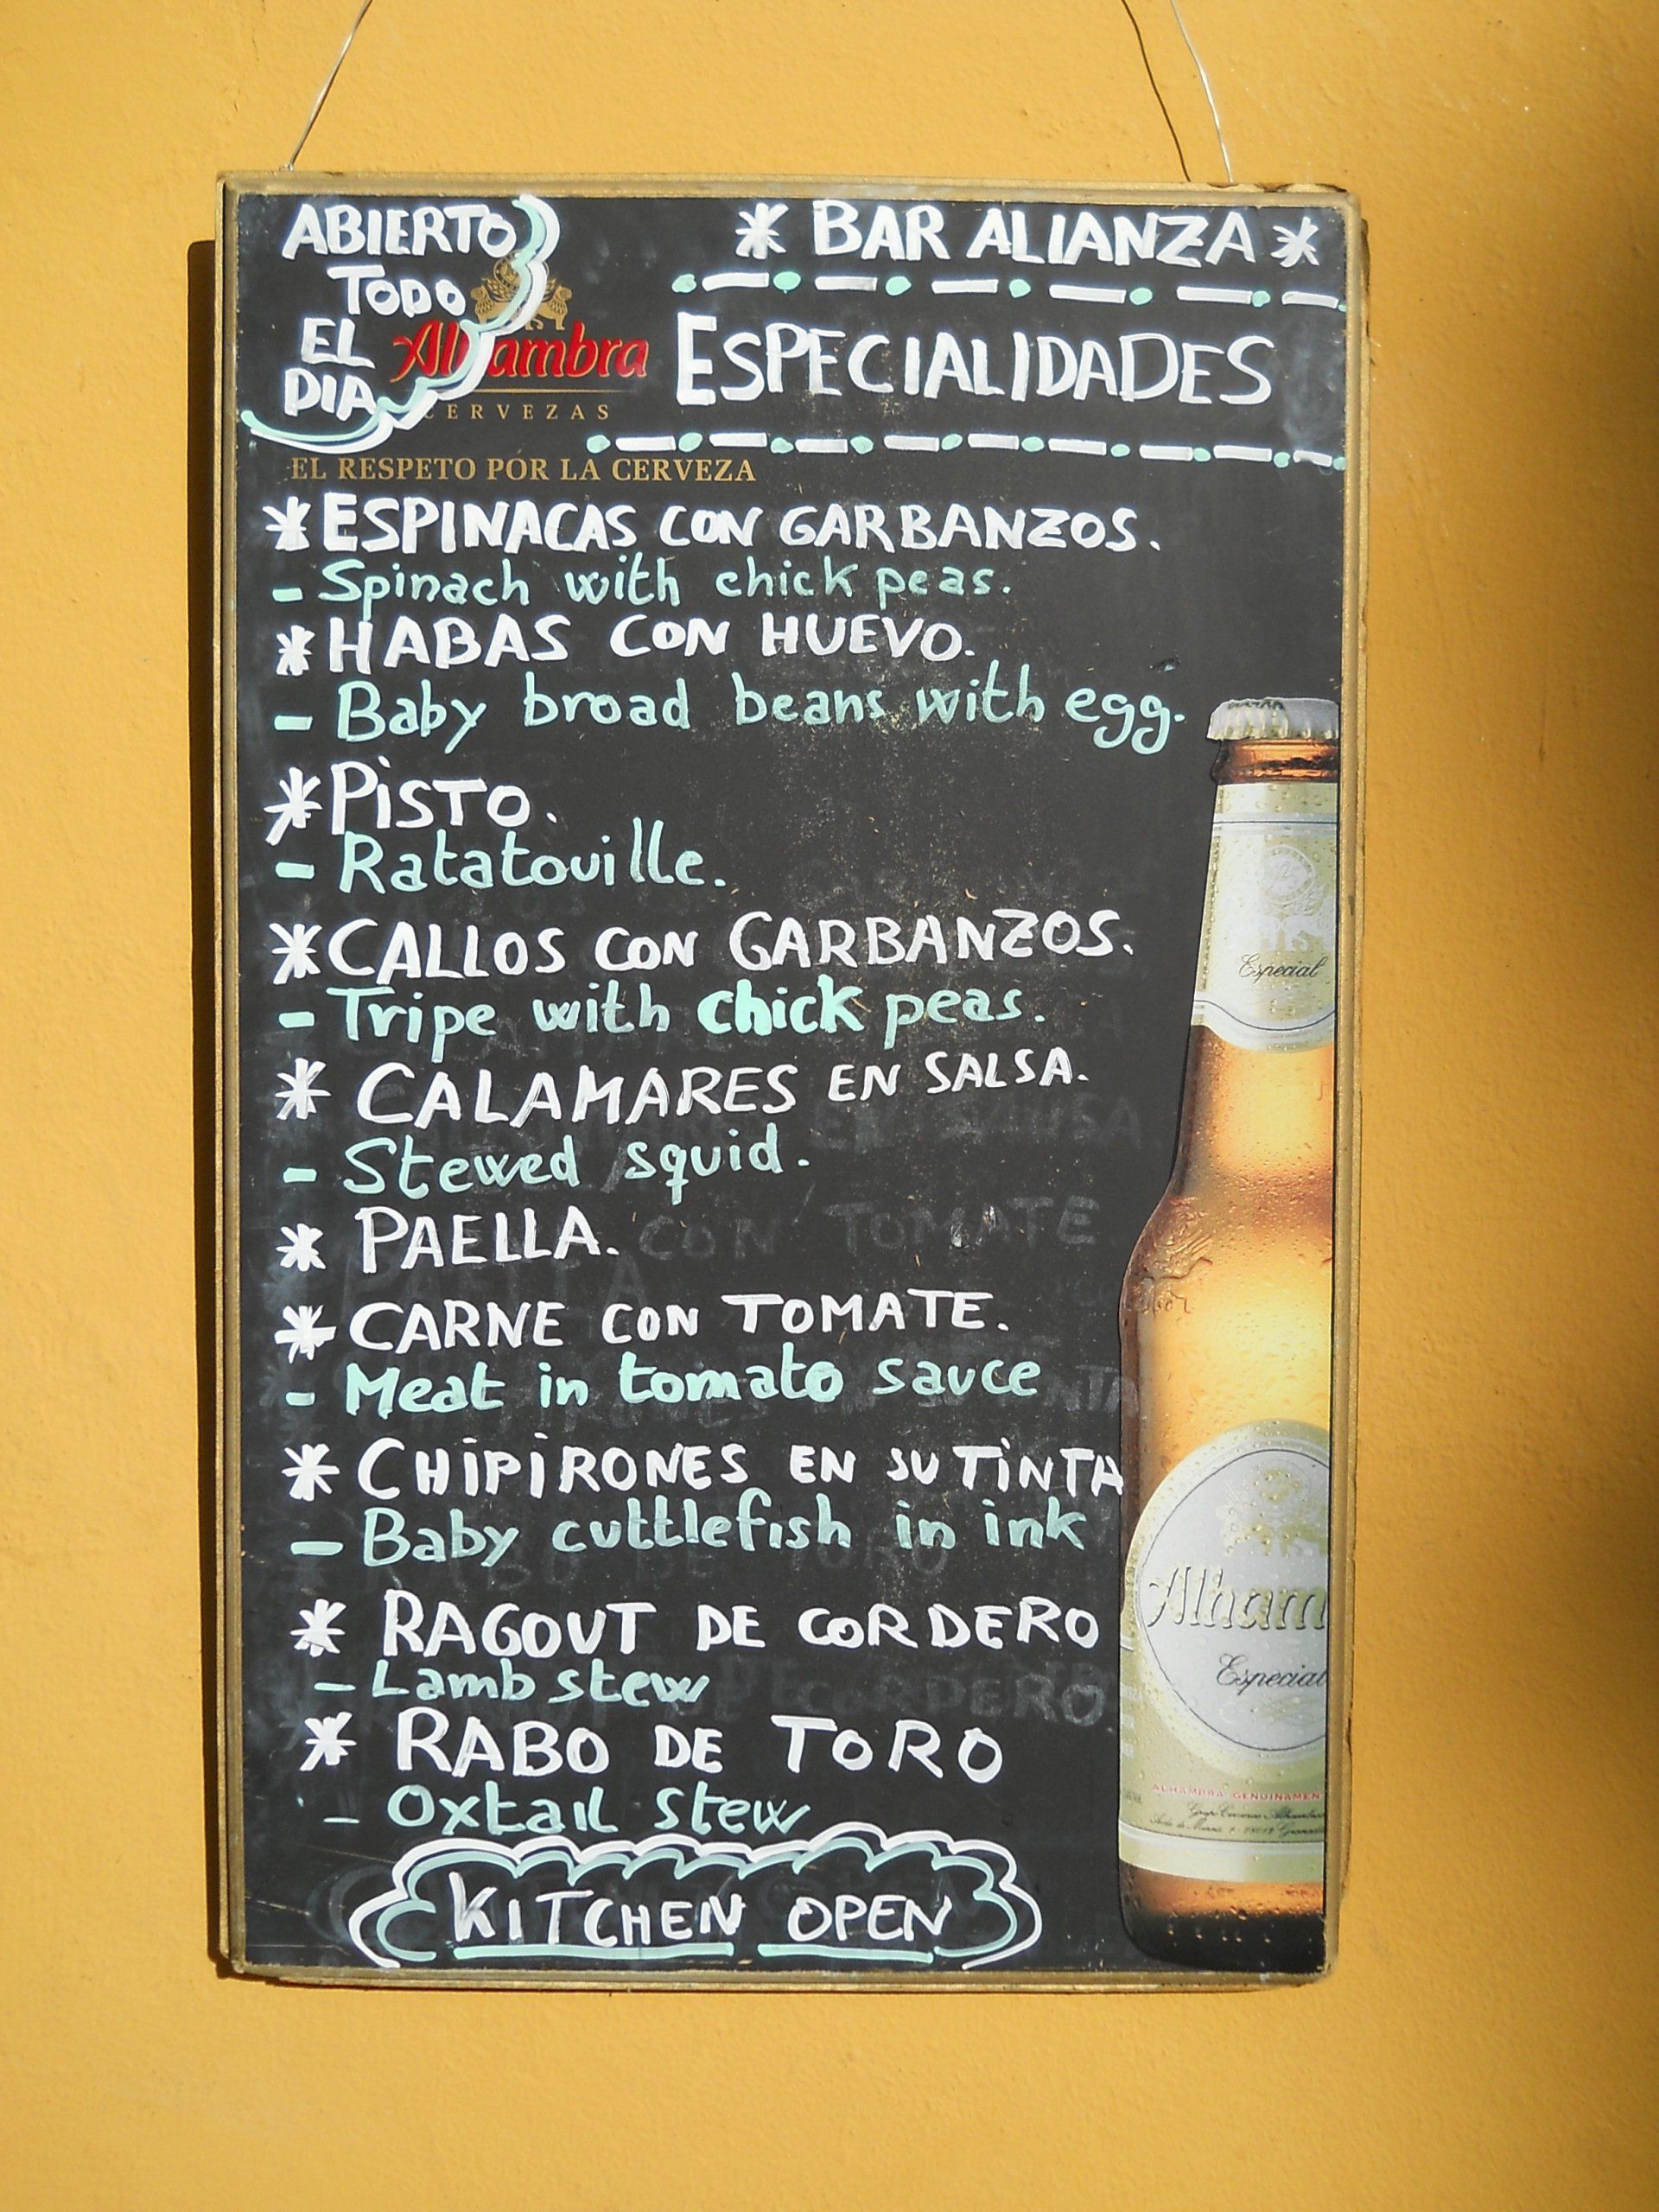 ABIERTO
TODO
EL
DIA
Alhambra
CERVEZAS
EL RESPETO POR LA CERVEZA
* BAR ALIANZA *
ESPECIALIDADES
* ESPINACAS CON GARBANZOS.
- Spinach with chick peas.
* HABAS CON HUEVO.
- Baby broad beans with egg.
* PISTO.
- Ratatouille.
* CALLOS CON GARBANZOS.
- Tripe with chick peas.
* CALAMARES EN SALSA.
- Stewed squid.
* PAELLA.
* CARNE CON TOMATE.
- Meat in tomato sauce
* CHIPIRONES EN SU TINTA
- Baby cuttlefish in ink
* RAGOUT DE CORDERO
- Lamb stew
* RABO DE TORO
- Oxtail stew
KITCHEN OPEN
Especial
Alham
Especial
ALHAMBRA GENUINAMEN